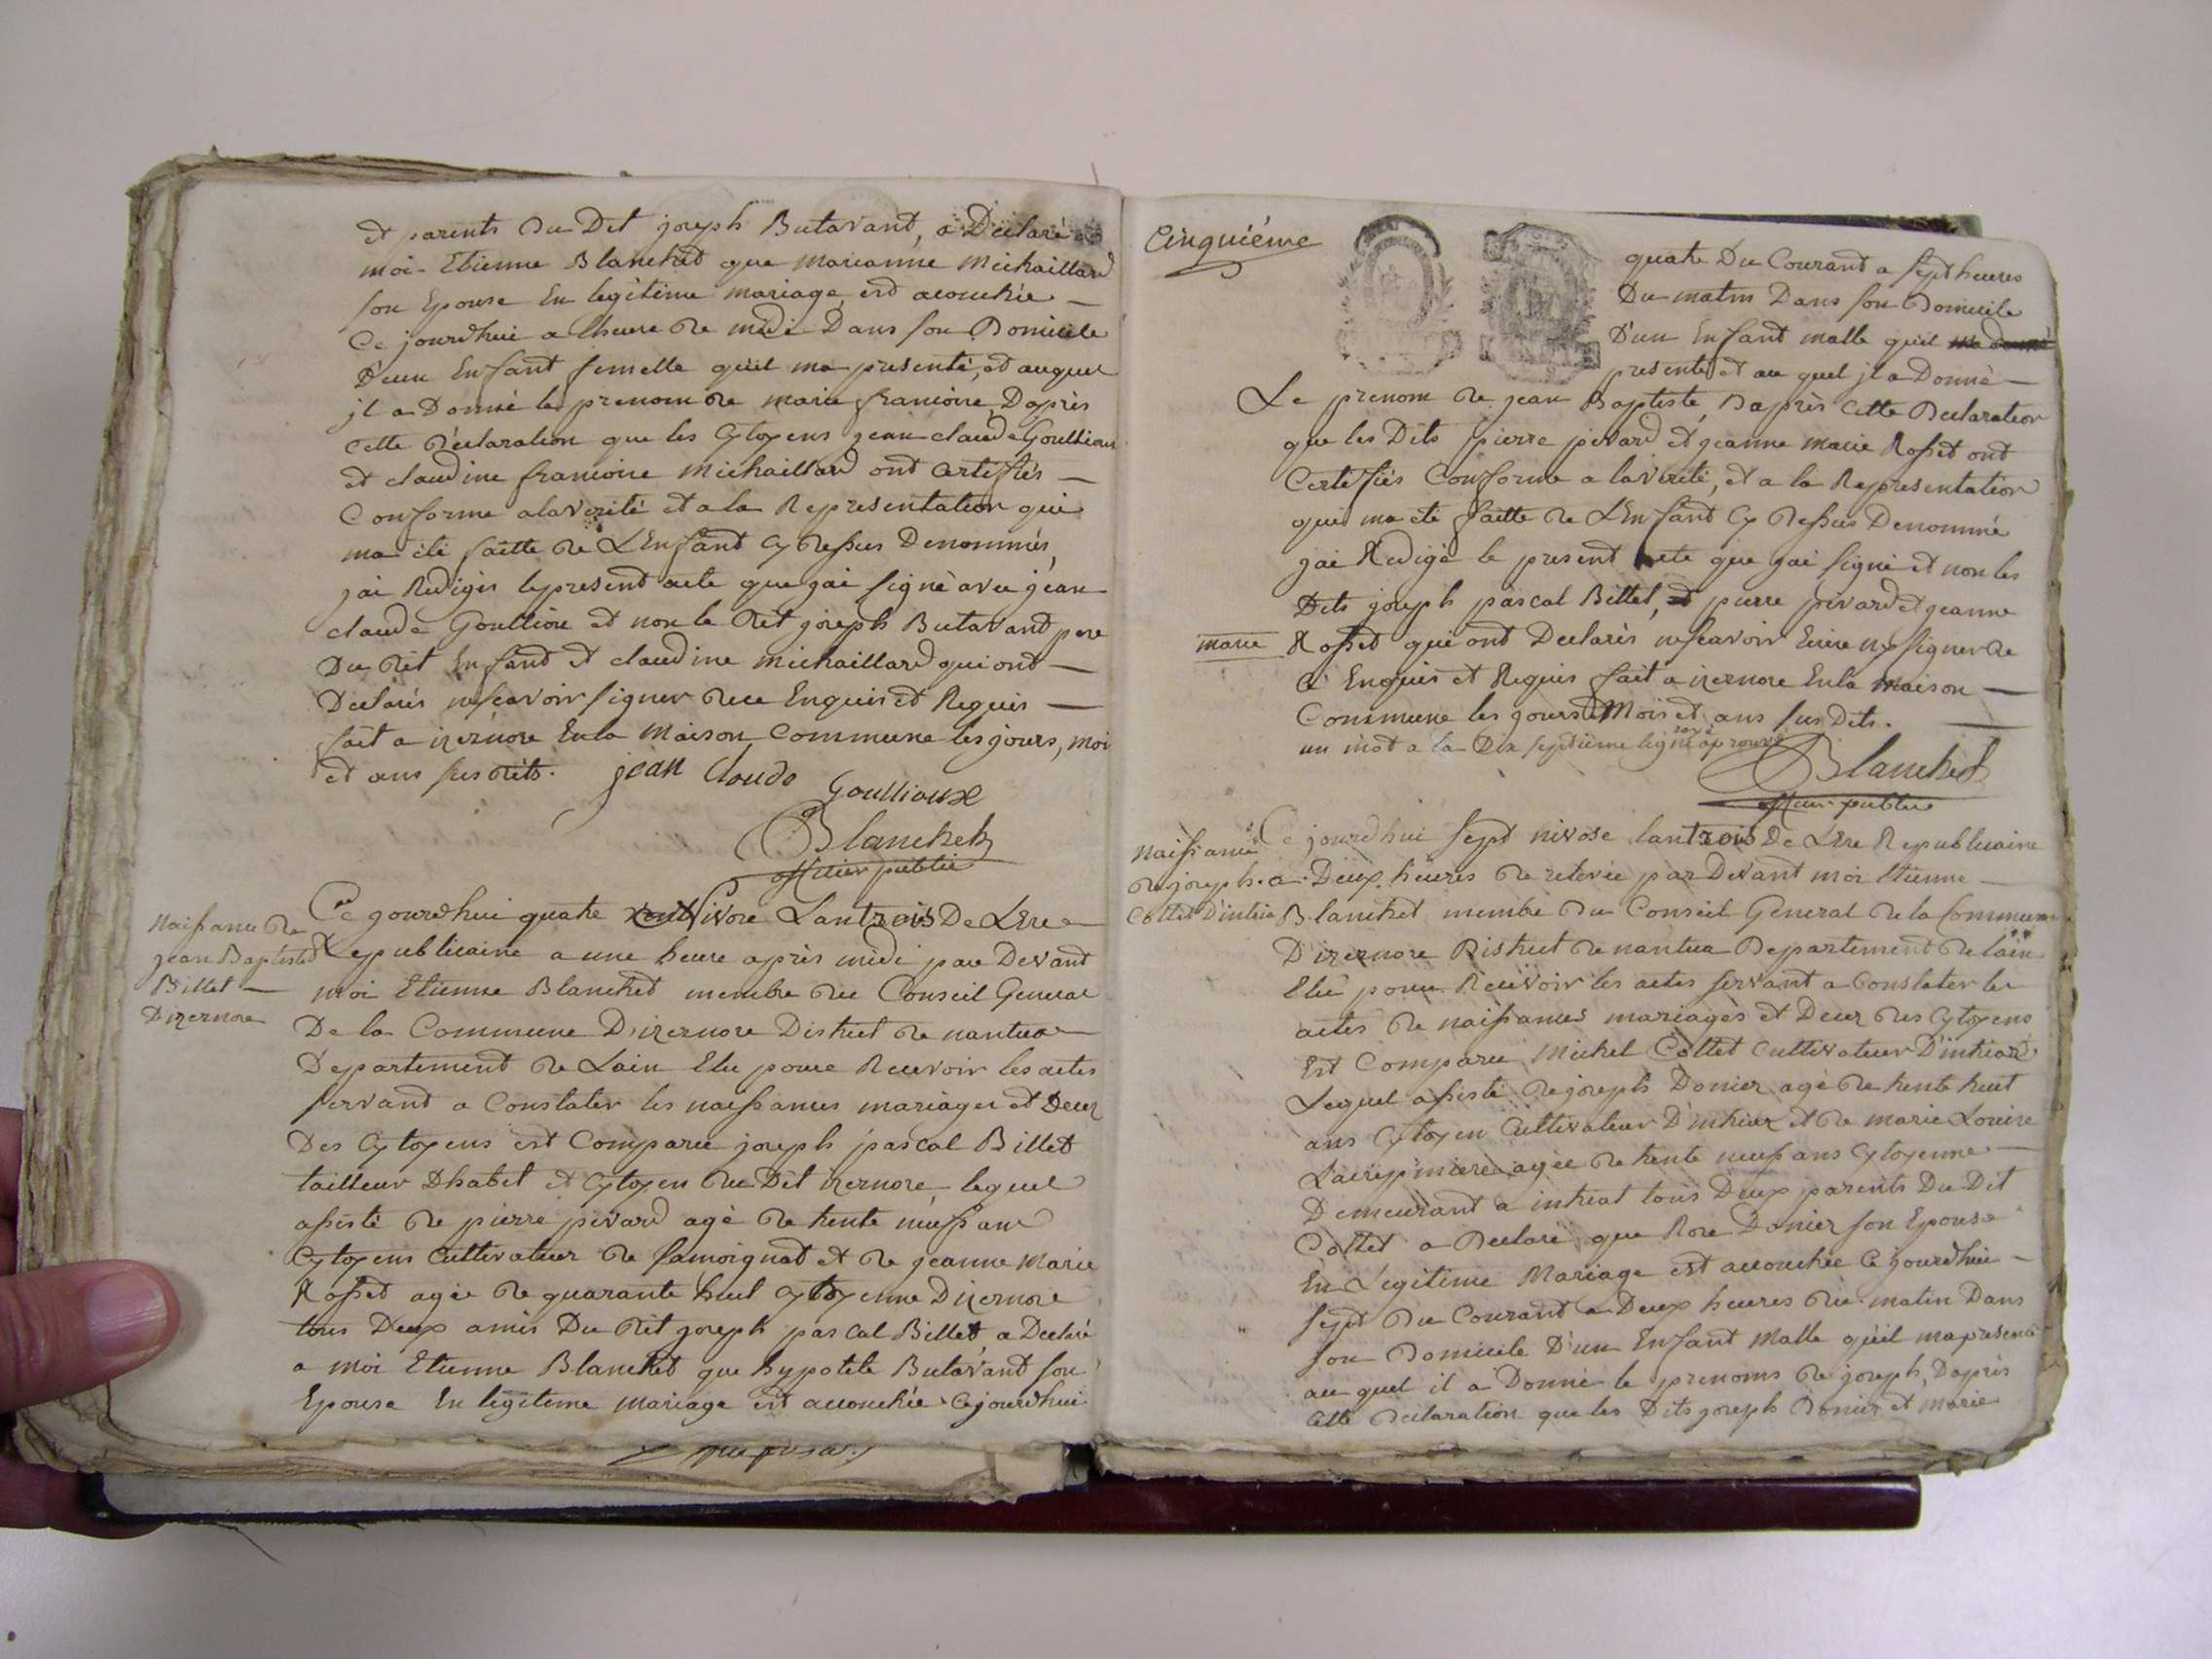 et parents Du Dit joseph Butavant, a Déclaré a
moi Etienne Blanchet que marianne Michaillard
son Epouse En legitime mariage est acouchée
Ce jourdhui a lheure de midi Dans son Domicile
D'eun Enfant femelle qu'il ma presenté, et auquel
jl a Donné les prenom de marie francoise, Daprès
cette Déclaration que les Cytoyens jean claude Goullioux
et claudine francoise Michaillard ont certifiés
Conforme a la verité et a la Representation qui
ma été faitte de L'Enfant Cy dessus Denommés,
jai Rediger le present acte que jai signé avec jean
claude Goullioux et non le Dit joseph Butavant pere
Du dit Enfant et claudine michaillard qui ont
Déclarés ne scavoir signer de ce Enquis et Requis
fait a izernore En la Maison Commune les jours, moi
et ans sus dits. jean Claude Goullioux
Blanchet
officier public
Naissance de
jean Baptiste
Billet
Dizernore
Ce jourdhui quatre Nivose Lan trois De L'Ere
Republicaine a une heure après midi par Devant
moi Etienne Blanchet membre du Conseil General
De la Commune D'izernore District de nantua
Departement de Lain Elu pour Recevoir les actes
servant a Constater les naissances mariages et Decez
Des Cytoyens est Comparu joseph pascal Billet
tailleur Dhabet et Cytoyen du Dit izernore, lequel
assisté de pierre pevard agé de trente neuf ans
Cytoyens Cultivateur de samoignat et de jeanne Marie
Rosset agée de quarante huit Cytoyenne Dizernore
tous Deux amis Du dit joseph pascal Billet a Declaré
a moi Etienne Blanchet que hypolite Butavant son
Epouse En legitime mariage est acouchée Cejourdhui
Cinquiéme
quatre Du Courant a sept heures
Du matin Dans son Domicile
D'un Enfant malle qu'il
presenté et au quel jl a Donné
Le prenom de jean Baptiste, Daprès Cette Declaration
que les Dits pierre pevard et jeanne marie Rosset ont
Certifiés Conforme a la verité, et a la Representation
qui ma été faitte de L'Enfant Cy dessus Denommé
jai Redigé le present acte que jai signé et non les
Dits joseph pascal Billet, et pierre pevard et jeanne
marie Rosset qui ont Declarés ne scavoir Ecrire ny signer de
ce Enquis et Requis fait a izernore En la Maison
Commune les jours Mois et ans sus Dits.
un mot a la Dix septième ligne rayé aprouvé
Blanchet
officier public
Naissance
de joseph
Collet D'intria
Ce jourdhui sept nivose lan trois De L'Ere Republicaine
a Deux heures de relevée par Devant moi Etienne
Blanchet membre du Conseil General de la Commune
D'izernore District de nantua Departement de lain
Elu pour Recevoir les actes servant a Constater les
actes de naissances mariages et Decez des Cytoyens
Est Comparu Michel Collet Cultivateur D'intriat
Lequel assisté de joseph Donier agé de trente huit
ans Cytoyen Cultivateur D'intriat et de marie Louise
agée de trente neuf ans Cytoyenne
Demeurant a intriat tous Deux parents Du Dit
Collet a Declaré que Rose Donier son Epouse
En Legitime Mariage est acouchée Ce jourdhui
sept du Courant a Deux heures du matin Dans
son Domicile D'un Enfant Malle qu'il ma presenté
au quel il a Donné le prenoms de joseph, Daprès
cette Déclaration que les Dits joseph Donier et Marie